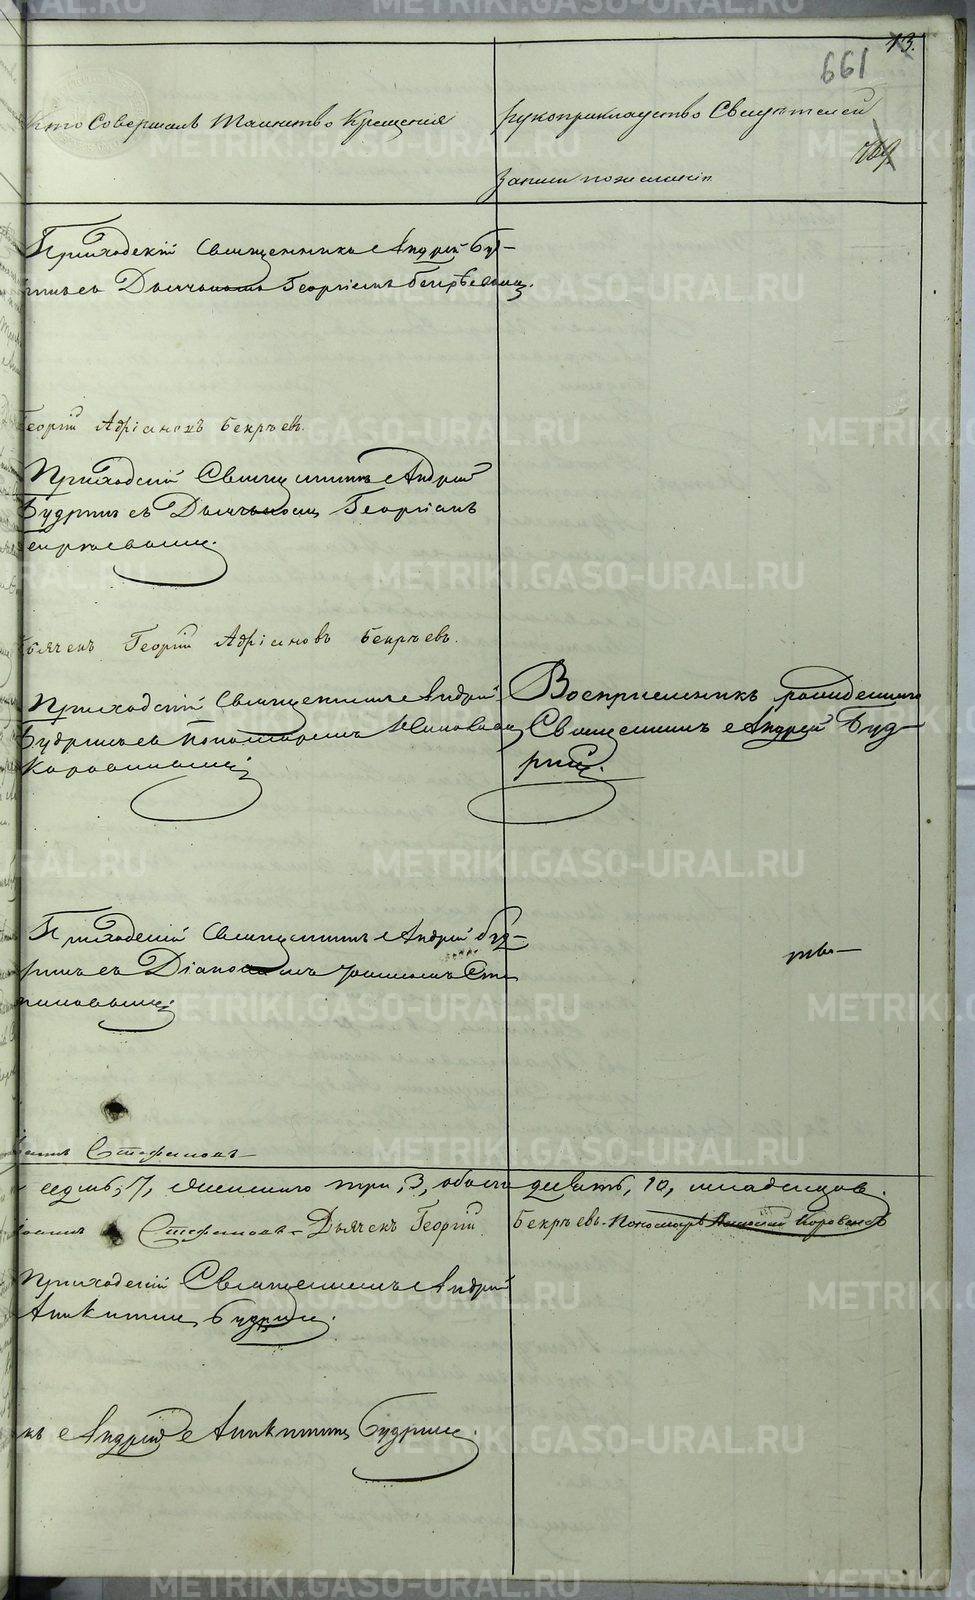 13.
661
Кто Совершалъ Таинство Крещенія
рукоприкладство Свидѣтелей
769
записи по желанію
Приходскій Священникъ Андрей Бу-
дринъ съ Дьячькомъ Георгіемъ Бекрѣевымъ.
Георгій Адріановъ Бекрѣевъ.
Приходскій Священникъ Андрей
Будринъ съ Дьячькомъ Георгіемъ
Бекрѣевымъ.
Дьячекъ Георгій Адріановъ Бекрѣевъ.
Приходскій Священникъ Андрей
Будринъ съ Пономаремъ
Коровинымъ
Воспріемникъ
Священникъ Андрей Буд-
ринъ.
Приходскій Священникъ Андрей Буд-
ринъ съ Діакономъ Іоанномъ Сте-
фановымъ
Іоаннъ Стефановъ
седмь, 7, женскаго три, 3, обоего 10, младенцовъ.
Іоаннъ Стефановъ - Дьячекъ Георгій Бекрѣевъ - Пономарь Коровинъ
Приходскій Священникъ Андрей
Аникитинъ Будринъ.
къ Андрей Аникитинъ Будринъ.
METRIKI.GASO-URAL.RU